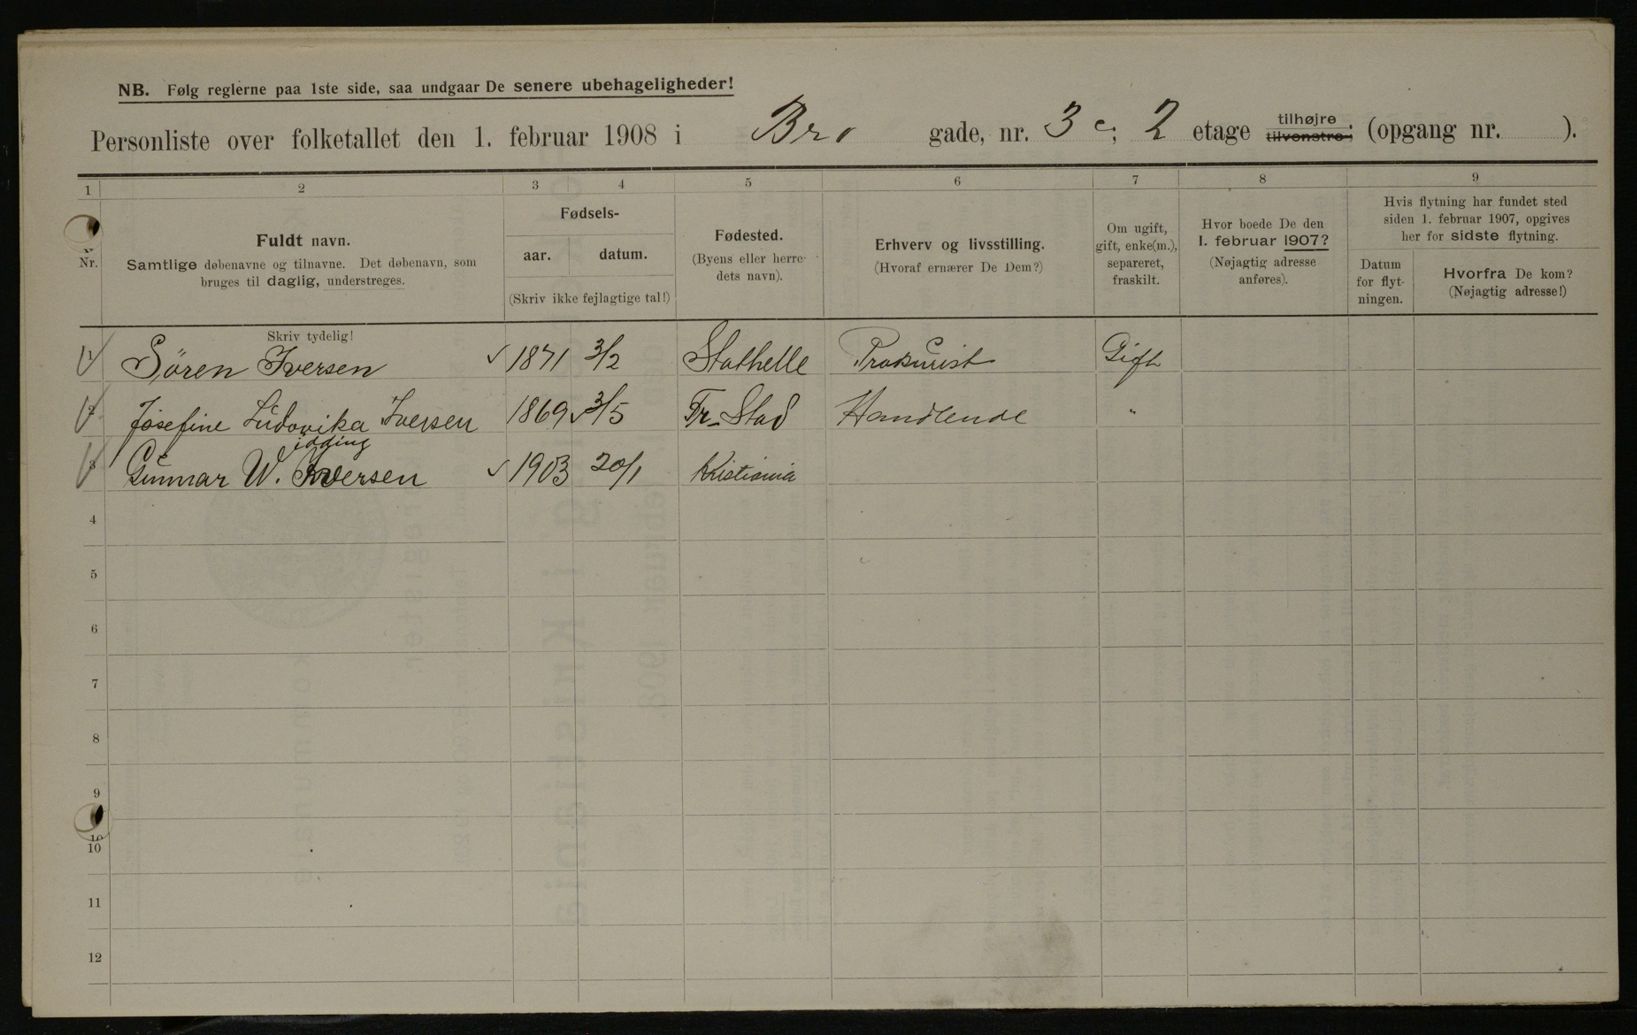 NB. Følg reglerne paa 1ste side, saa undgaar De senere ubehageligheder!
Personliste over folketallet den 1. februar 1908 i Bro gade, nr. 3 c; 2 etage tilhøjre tilvenstre; (opgang nr. ).
1 2 3 4 5 6 7 8 9
Nr.
Fuldt navn.
Samtlige døbenavne og tilnavne. Det døbenavn, som
bruges til daglig, understreges.
Skriv tydelig!
Fødsels-
aar. datum.
(Skriv ikke fejlagtige tal!)
Fødested.
(Byens eller herre-
dets navn).
Erhverv og livsstilling.
(Hvoraf ernærer De Dem?)
Om ugift,
gift, enke(m.),
separeret,
fraskilt.
Hvor boede De den
1. februar 1907?
(Nøjagtig adresse
anføres).
Hvis flytning har fundet sted
siden 1. februar 1907, opgives
her for sidste flytning.
Datum
for flyt-
ningen.
Hvorfra De kom?
(Nøjagtig adresse!)
1 Sören Iversen 1871 3/2 Stathelle Prokurist Gift
2 Josefine Ludovika Iversen 1869 3/5 Fr-Stad Handlende "
idding
3 Gunnar W. Iversen 1903 20/1 Kristiania
4
5
6
7
8
9
10
10
11
12